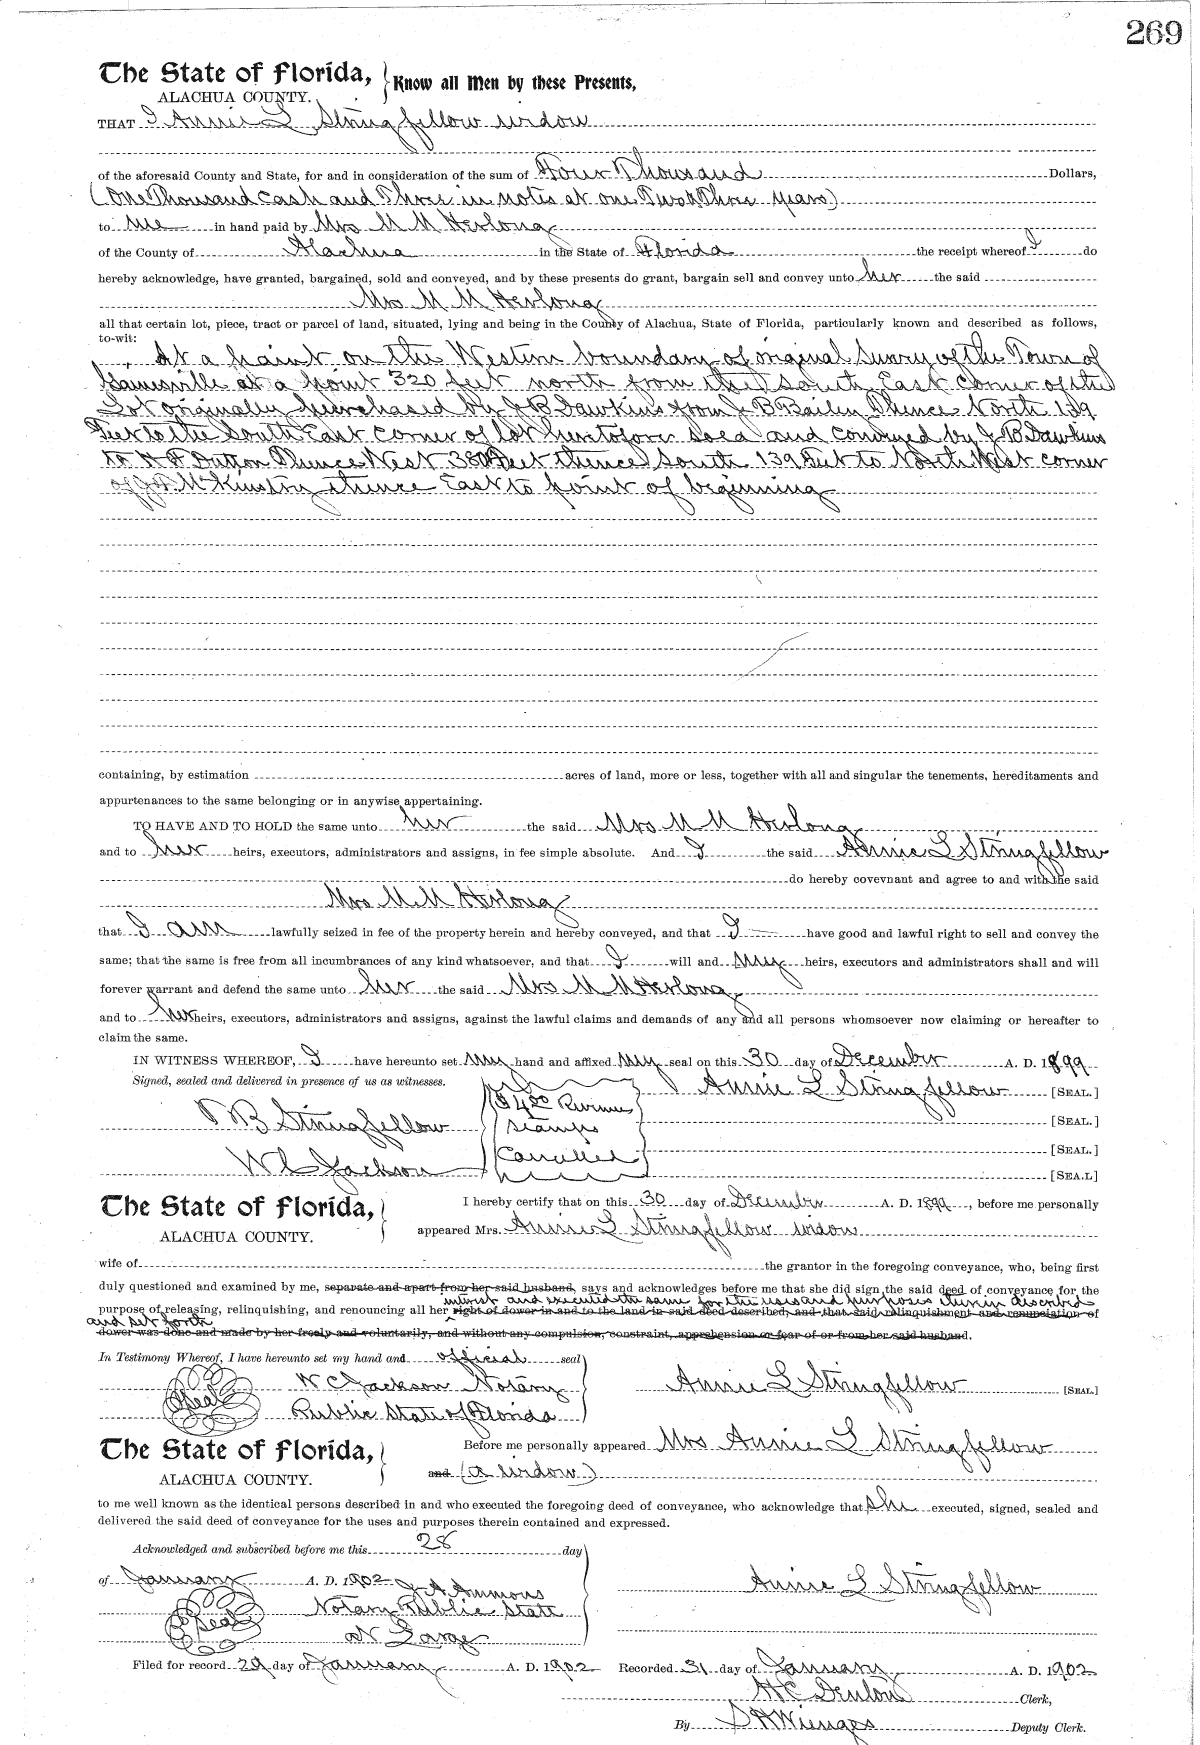 269
The State of Florida, } Know all Men by these Presents,
ALACHUA COUNTY.
THAT I Annie L Stringfellow widow
of the aforesaid County and State, for and in consideration of the sum of Four Thousand Dollars,
(One Thousand cash and Three in notes at one Two & Three years)
to me in hand paid by Mrs M M Herlong
of the County of Alachua in the State of Florida the receipt whereof I do
hereby acknowledge, have granted, bargained, sold and conveyed, and by these presents do grant, bargain sell and convey unto her the said
Mrs M M Herlong
all that certain lot, piece, tract or parcel of land, situated, lying and being in the County of Alachua, State of Florida, particularly known and described as follows,
to-wit:
At a point on the Western boundary of original Survey of the Town of
Gainesville at a point 320 feet north from the South East corner of the
Lot originally purchased by J B Dawkins from J B Bailey Thence North 139
Feet to the South East corner of lot heretofore sold and conveyed by J B Dawkins
to H F Dutton Thence West 380 feet thence South 139 feet to North West corner
of J A McKinstry thence East to point of beginning
containing, by estimation acres of land, more or less, together with all and singular the tenements, hereditaments and
appurtenances to the same belonging or in anywise appertaining.
TO HAVE AND TO HOLD the same unto her the said Mrs M M Herlong
and to her heirs, executors, administrators and assigns, in fee simple absolute. And I the said Annie L Stringfellow
do hereby covevnant and agree to and with the said
Mrs M M Herlong
that I am lawfully seized in fee of the property herein and hereby conveyed, and that I have good and lawful right to sell and convey the
same; that the same is free from all incumbrances of any kind whatsoever, and that I will and my heirs, executors and administrators shall and will
forever warrant and defend the same unto her the said Mrs M M Herlong
and to her heirs, executors, administrators and assigns, against the lawful claims and demands of any and all persons whomsoever now claiming or hereafter to
claim the same.
IN WITNESS WHEREOF, I have hereunto set my hand and affixed my seal on this 30 day of December A. D. 1899
Signed, sealed and delivered in presence of us as witnesses. Annie L Stringfellow [SEAL.]
$4.00 Revenue
B Stringfellow Stamps [SEAL.]
Cancelled [SEAL.]
W C Jackson [SEA.L]
The State of Florida, I hereby certify that on this 30 day of December A. D. 1899, before me personally
ALACHUA COUNTY. appeared Mrs. Annie L Stringfellow widow
wife of the grantor in the foregoing conveyance, who, being first
duly questioned and examined by me, separate and apart from her said husband, says and acknowledges before me that she did sign the said deed of conveyance for the
interest and executed the same for the uses and purposes therein described
purpose of releasing, relinquishing, and renouncing all her right of dower in and to the land in said deed described, and that said relinquishment and renunciation of
and set forth
dower was done and made by her freely and voluntarily, and without any compulsion, constraint, apprehension or fear of or from her said husband.
In Testimony Whereof, I have hereunto set my hand and official seal
Seal W C Jackson Notary Annie L Stringfellow [SEAL]
Public State of Florida
The State of Florida, Before me personally appeared Mrs Annie L Stringfellow
ALACHUA COUNTY. and (a widow)
to me well known as the identical persons described in and who executed the foregoing deed of conveyance, who acknowledge that she executed, signed, sealed and
delivered the said deed of conveyance for the uses and purposes therein contained and expressed.
Acknowledged and subscribed before me this 28 day
of January A. D. 1902 J A Ammons Annie L Stringfellow
Seal Notary Public State
at Large
Filed for record 29 day of January A. D. 1902 Recorded 31 day of January A. D. 1902
H C Denton Clerk,
By S H Wienges Deputy Clerk.